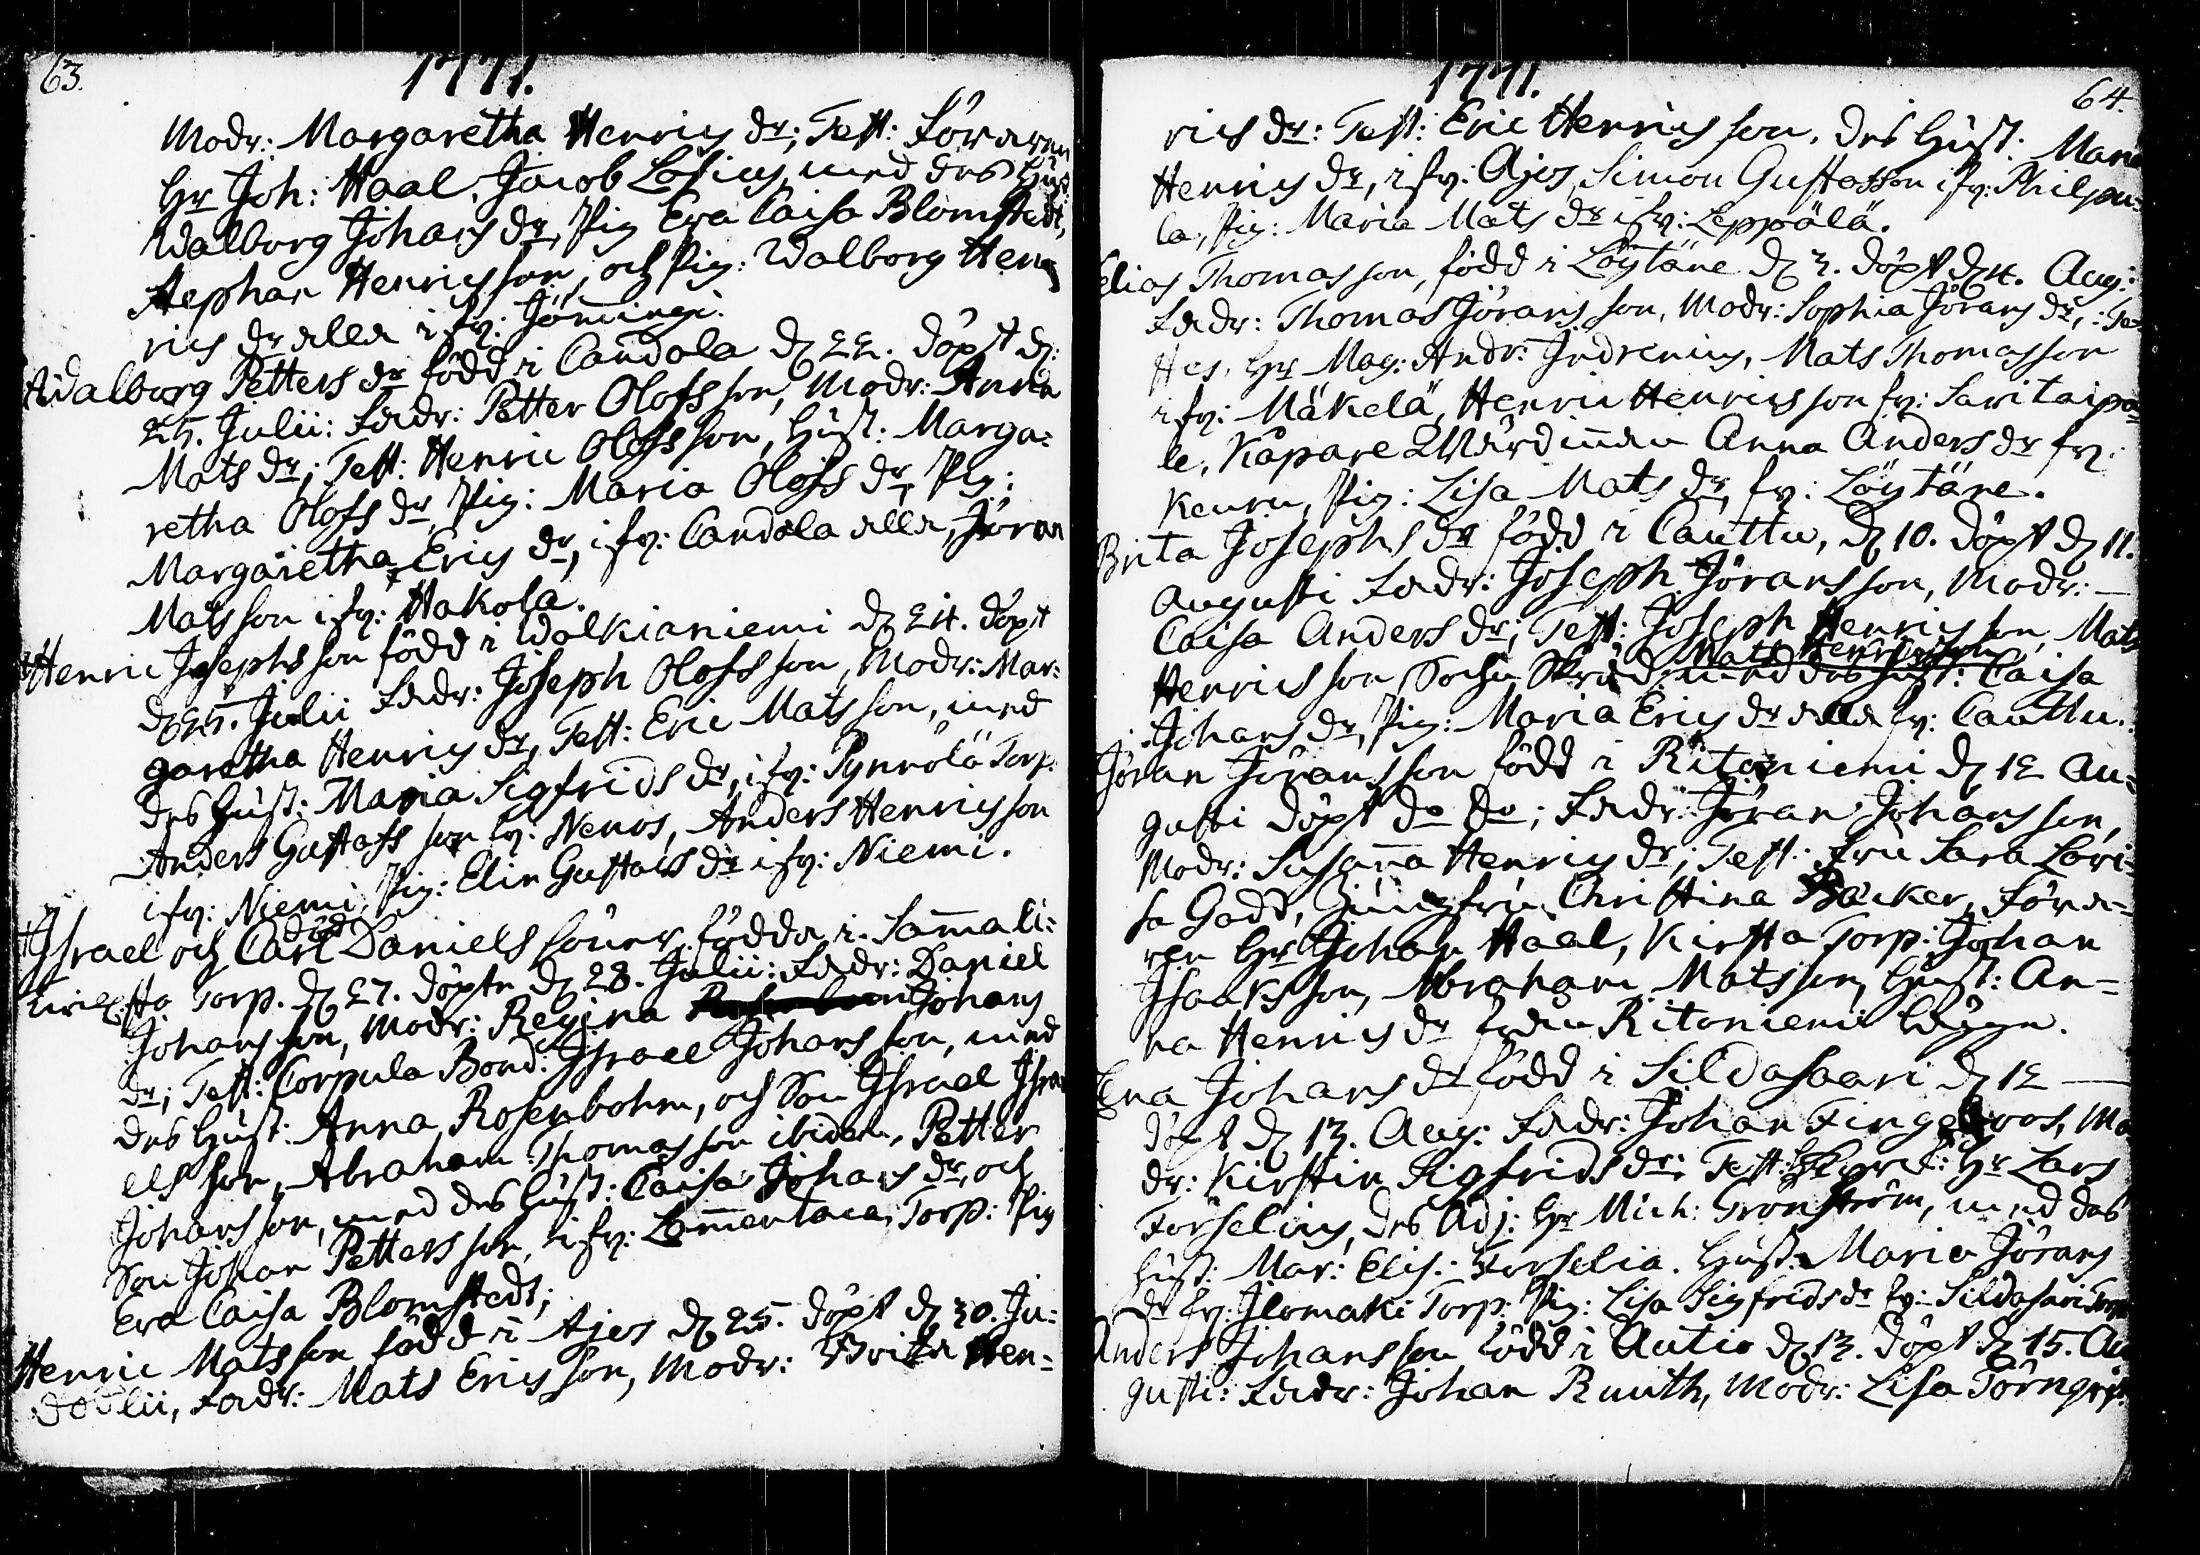 63.
1771.
Modr: Margaretha Henrics dr; Test: Föraren
Hr Joh: Haal, Jacob Lofius, med des Hust:
Walborg Johans dr, Pig Eva Caisa Blomstedt,
Stephan Henricsson, och Pig: Walborg Hen-
rics dr alla i fr: Jömingi.
Walborg Petters dr född i Candola d 22. döpt d:
25. Julii: Fadr: Petter Olofsson, Modr: Anna
Mats dr; Test: Henric Olofsson, Hust: Marga-
retha Olofs dr, Pig: Maria Olofs dr, Pig:
Margaretha Erics dr, i fr: Candola alla, Jöran
Matsson i fr: Hakola.
Henric Josephsson född i Walkianiemi d 24. döpt
d 25. Julii Fadr: Joseph Olofsson, Modr: Mar-
garetha Henrics dr, Test: Eric Matsson, med
des Hust: Maria Sigfrids dr, i fr: Pynnölä Torp.
Anders Gustafsson fr: Nenos, Anders Henricsson
i fr: Niemi, Pig: Elin Gustafs dr i fr: Niemi.
död
Israel och Carl Daniels söner födda i Sam̄ali-
sto Torp. d 27. döpte d 28. Julii: Fadr: Daniel
Johansson, Modr: Regina Johans
dr; Test: Corpula Bond: Israel Johansson, med
des Hust: Anna Rosenbohm, och Son Israel Isra-
elsson, Abraham Thomasson ibidem, Petter
Johansson, med des Hust: Caisa Johans dr, och
Son Johan Pettersson, i fr: Lam̄entaca Torp: Pig
Eva Caisa Blomstedt;
Henric Matsson född i Ajos d 25. döpt d 30. Ju-
död lii, Fadr: Mats Ericsson, Modr: Brita Hen-
1771.
64.
rics dr: Test: Eric Henricsson, des Hust: Maria
Henrics dr, i fr: Ajos, Simon Gustafsson i fr: Philpu-
la, Pig: Maria Mats dr i fr: Leppälä.
Elias Thomasson, född i Löytäne d 3. döpt d 4. Aug:
Fadr: Thomas Jöransson, Modr: Sophia Jörans dr, : Te-
stes, Hr Mag: Andr: Indrenius, Mats Thomasson
i fr: Mäkelä, Henric Henricsson fr: Savitaipa-
le, Kapare Wärdin̄an Anna Anders dr fr:
Kenru, Pig: Lisa Mats dr, fr: Löytäne.
Brita Josephs dr född i Cauttu, d 10. döpt d 11.
Augusti Fadr: Joseph Jöransson, Modr: —
Caisa Anders dr; Test: Joseph Henricsson, Mats
Mats Henricsson
Henricsson Sochn Skräd: med des Hust: Caisa
Johans dr, Pig: Maria Erics dr alla fr: Cauttu.
Jöran Jöransson född i Ritoniemi d 12 Au-
gusti döpt do do; Fadr: Jöran Johansson,
Modr: Susan̄a Henrics dr; Test: Fru Sara Lovi-
sa Gadd, Jungfru Christina Backer, Föra-
ren Hr Johan Haal, Kirsta Torp: Johan
Isaksson, Abraham Matsson, Hust: An-
na Henrics dr från Ritoniemi bägge.
Ena Johans dr född i Sildasaari d 12 —
döpt d 13. Aug: Fadr: Johan Fingerroos, Mo-
dr: Kirstin Sigfrids dr: Test: Hr Lars
Forselius, des Adj: Hr Mich: Gronström, med des
Hust: Mar: Elis: Forselia. Hust: Maria Jörans
dr fr: Ilomäki Torp: Pig: Lisa Sigfrids dr fr: Sildasari Torp
Anders Johansson född i Autio d 13. döpt d 15. Au
gusti: Fadr: Johan Ruuth, Modr: Lisa Törnqvist